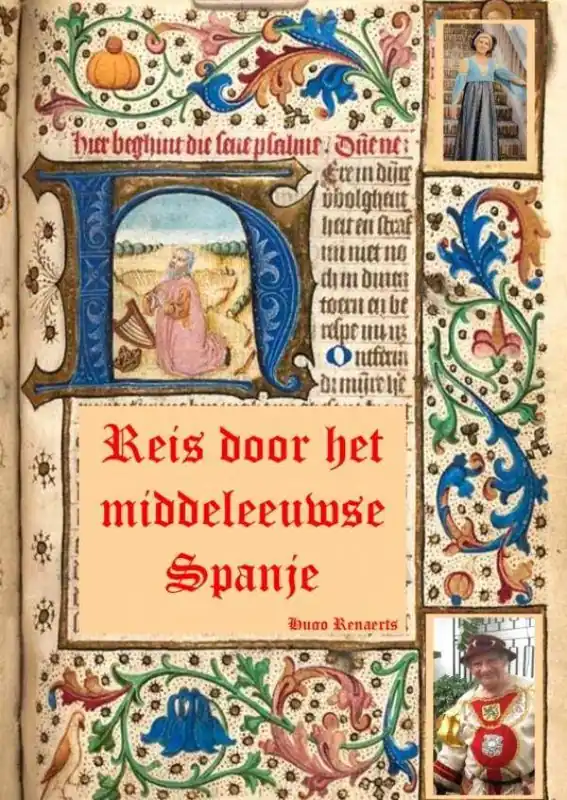 hier beghint die seue psalme. Dñe ne:
Ere in dijre
vbolghent
heit en straf
mi niet no
ch in dinen
toern en be
respe mi nz
Ontferm
di mijre hē
Reis door het
middeleeuwse
Spanje
Hugo Renaerts